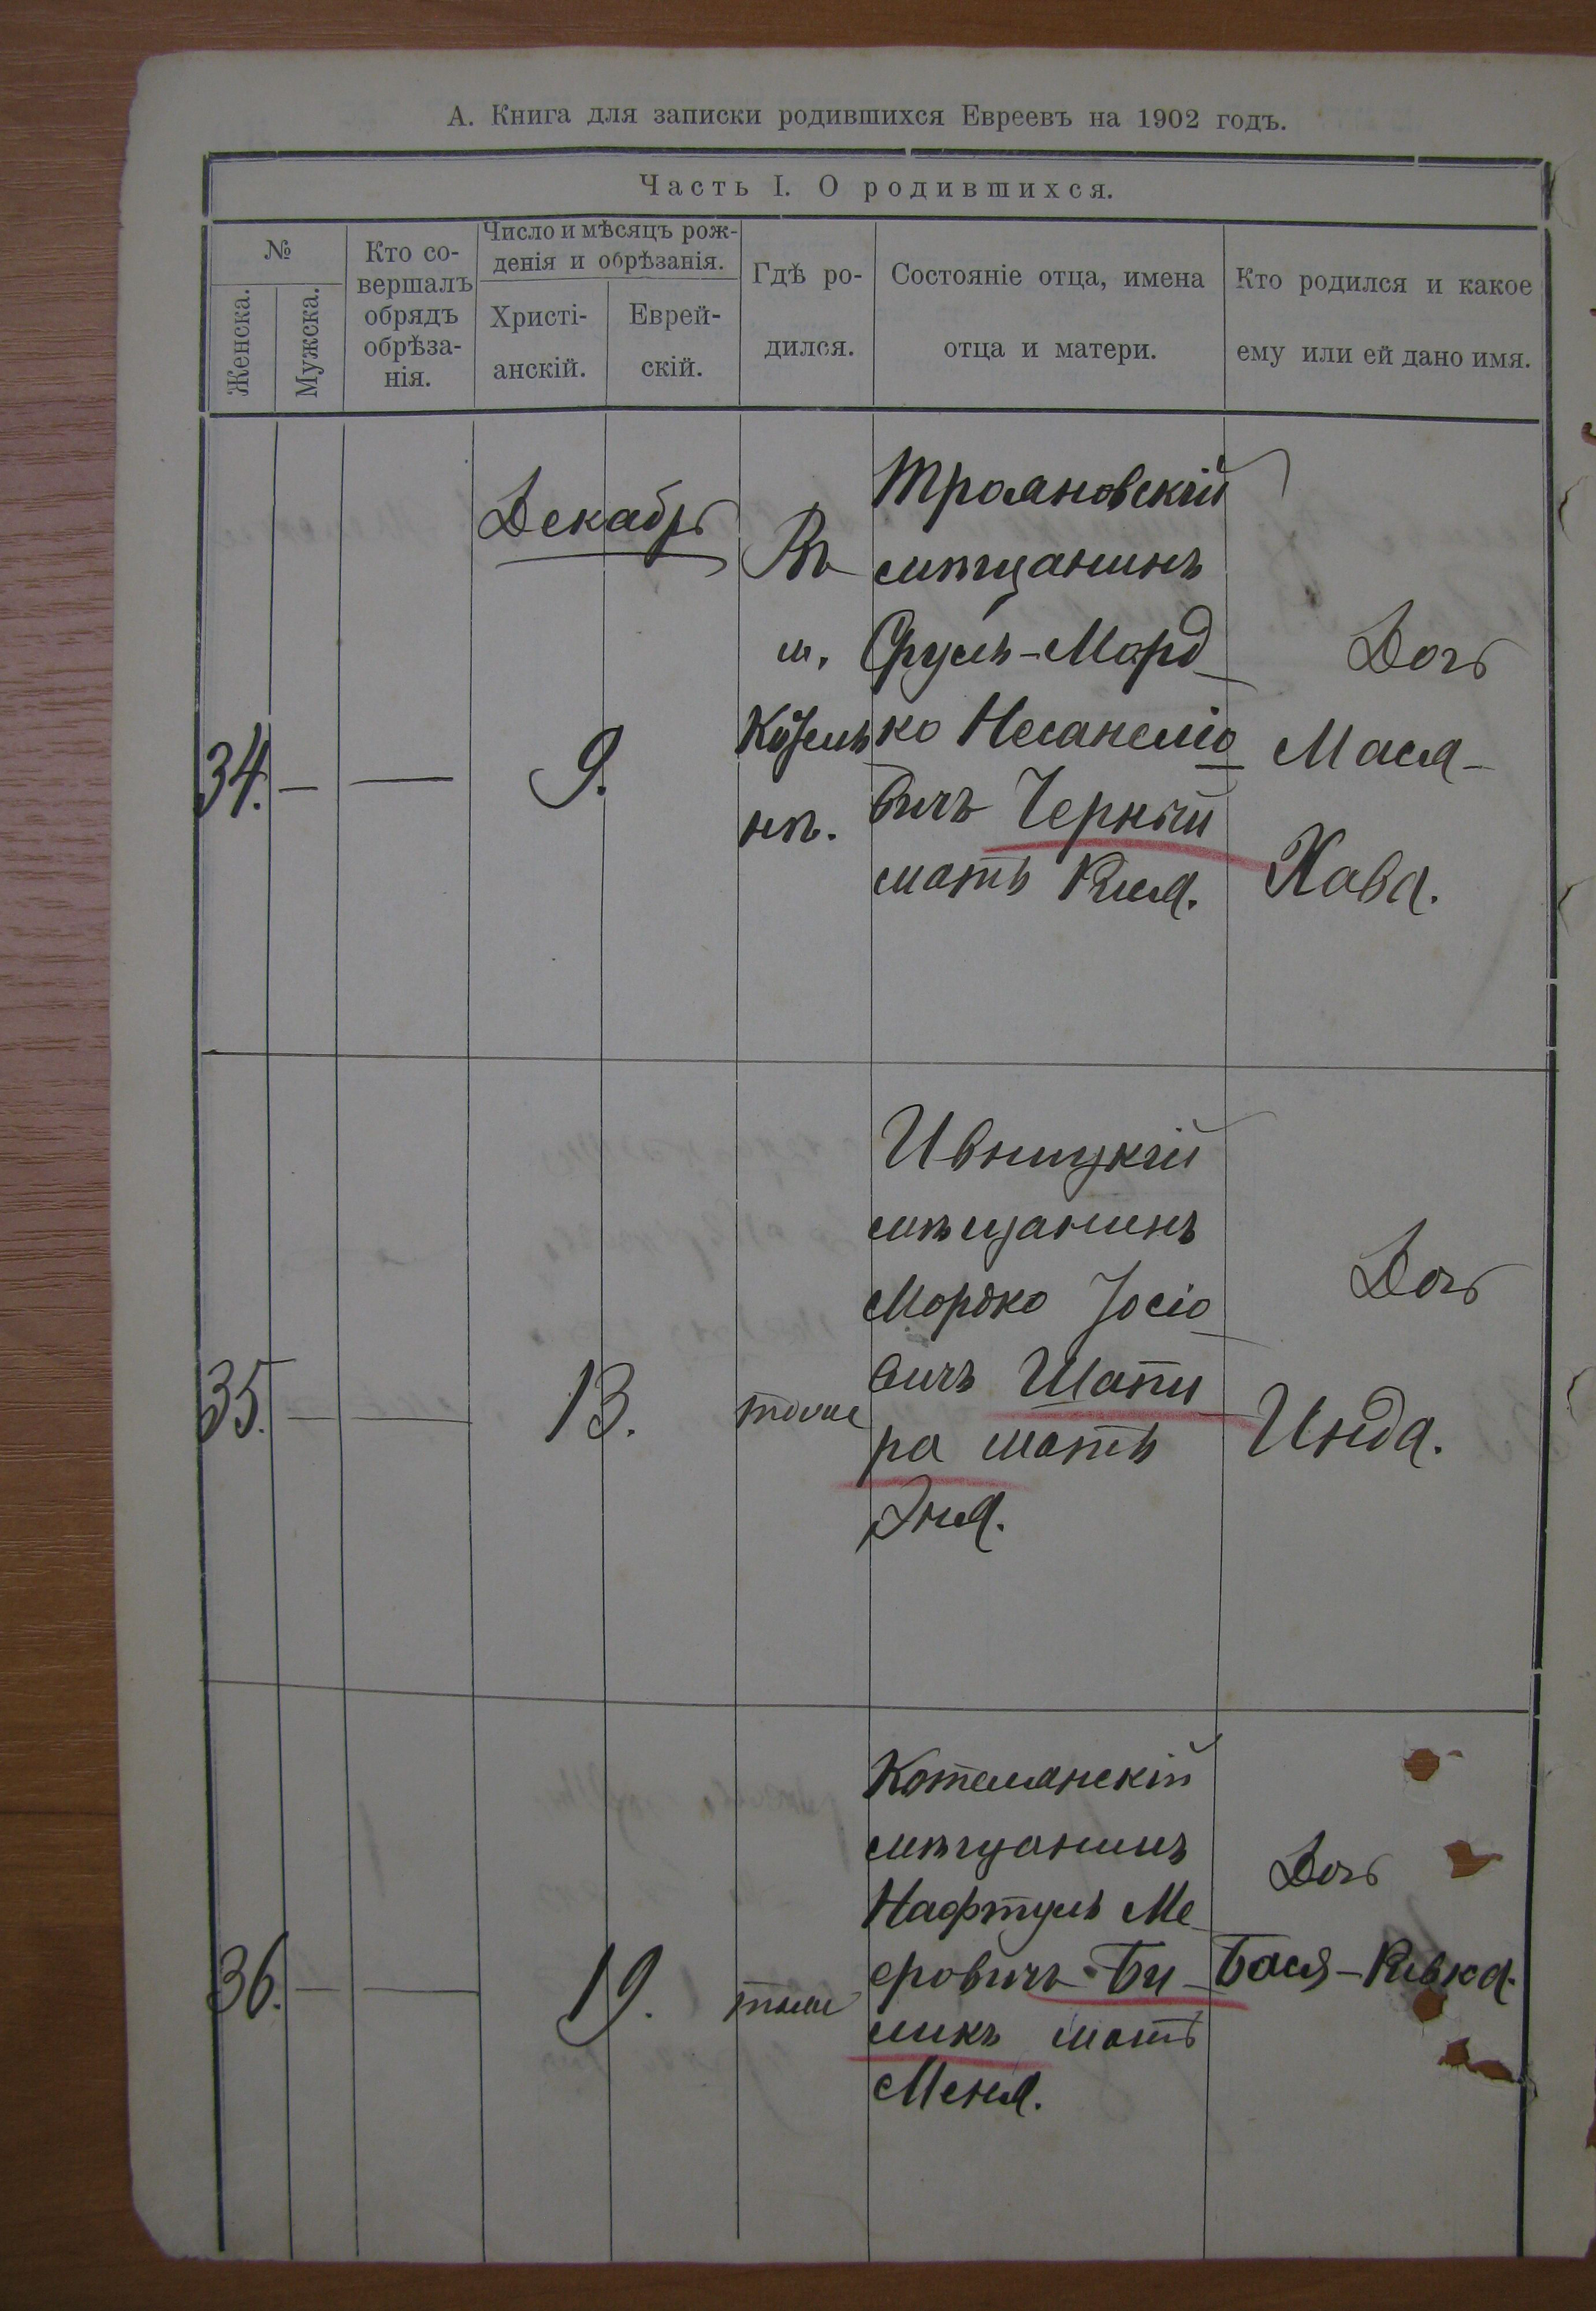 А. Книга для записки родившихся Евреевъ на 1902 годъ.
Часть I. О родившихся.
№
Женска.
Мужска.
Кто со-
вершалъ
обрядъ
обрѣза-
нія.
Число и мѣсяцъ рож-
денія и обрѣзанія.
Христі-
анскій.
Еврей-
скій.
Гдѣ ро-
дился.
Состояніе отца, имена
отца и матери.
Кто родился и какое
ему или ей дано имя.
34.
—
—
Декабрь
9.
Въ
м.
нѣ.
Трояновскій
мѣщанинъ
Сруль-Морд
ко
вичъ Черный
мать
Дочь
Мася-
Хава.
35.
—
—
13.
тоже
Ивницкій
мѣщанинъ
Мордко Іосіо
вичъ Шапи
ра мать
Эня.
Дочь
Инда.
36.
—
—
19.
тоже
Котелянскій
мѣщанинъ
Нафтуль Ме
еровичъ Би
ликъ мать
Меня.
Дочь
Бася-Ривка.